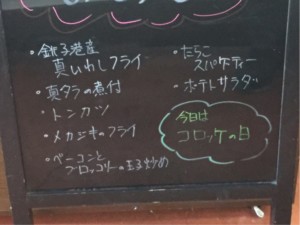 ・銚子港産
真いわしフライ
・真タラの煮付
・トンカツ
・メカジキのフライ
・ベーコンと
ブロッコリーの玉子炒め
・たらこ
スパゲティー
・ポテトサラダ
今日は
コロッケの日